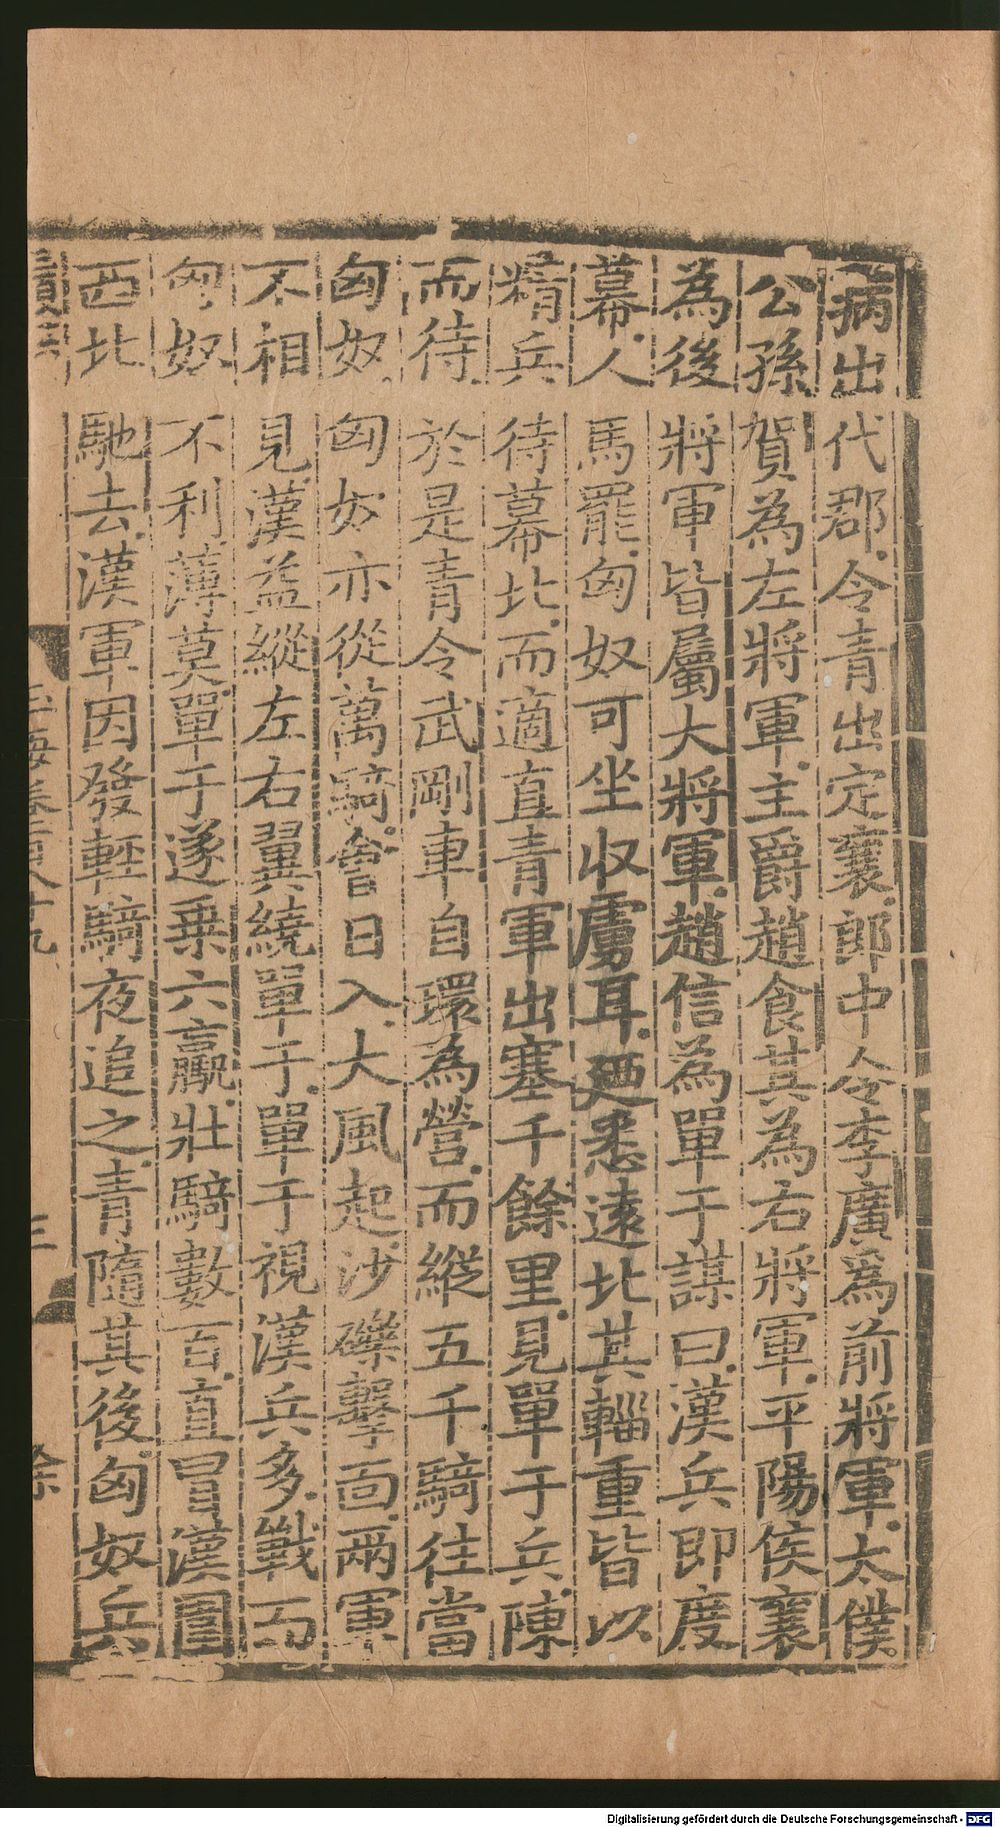 病出代郡令青出定襄郎中令李廣爲前將軍太僕
公孫賀為左將軍主爵趙食其為右將軍平陽侯襄
為後將軍皆屬大將軍趙信為單于謀曰漢兵即度
幕人馬罷匈奴可坐收虜耳廼悉遠北其輜重皆以
精兵待幕北而適直青軍出塞千餘里見單于兵陳
而待於是青令武剛車自環為營而縱五千騎往當
匈奴匈奴亦從萬騎會日入大風起沙礫擊面兩軍
不相見漢益縱左右翼繞單于單于視漢兵多戰而
匈奴不利薄莫單于遂乗六臝壯騎數百直冒漢圍
西北馳去漢軍因發輕騎夜追之青隨其後匈奴兵
玉海卷一百八十九 三
Digitalisierung gefördert durch die Deutsche Forschungsgemeinschaft - DFG